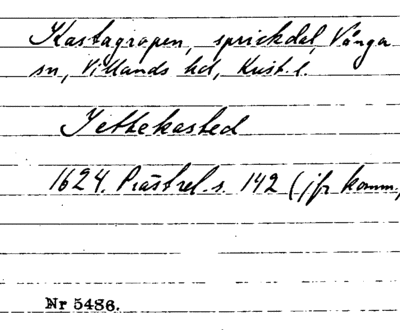 Kastagropen, sprickdal, Vånga
sn, Villands hd, Krist. l.
Jettekasted
1624. Prästrel. s. 142 (jfr komm.,
Nr 5486.